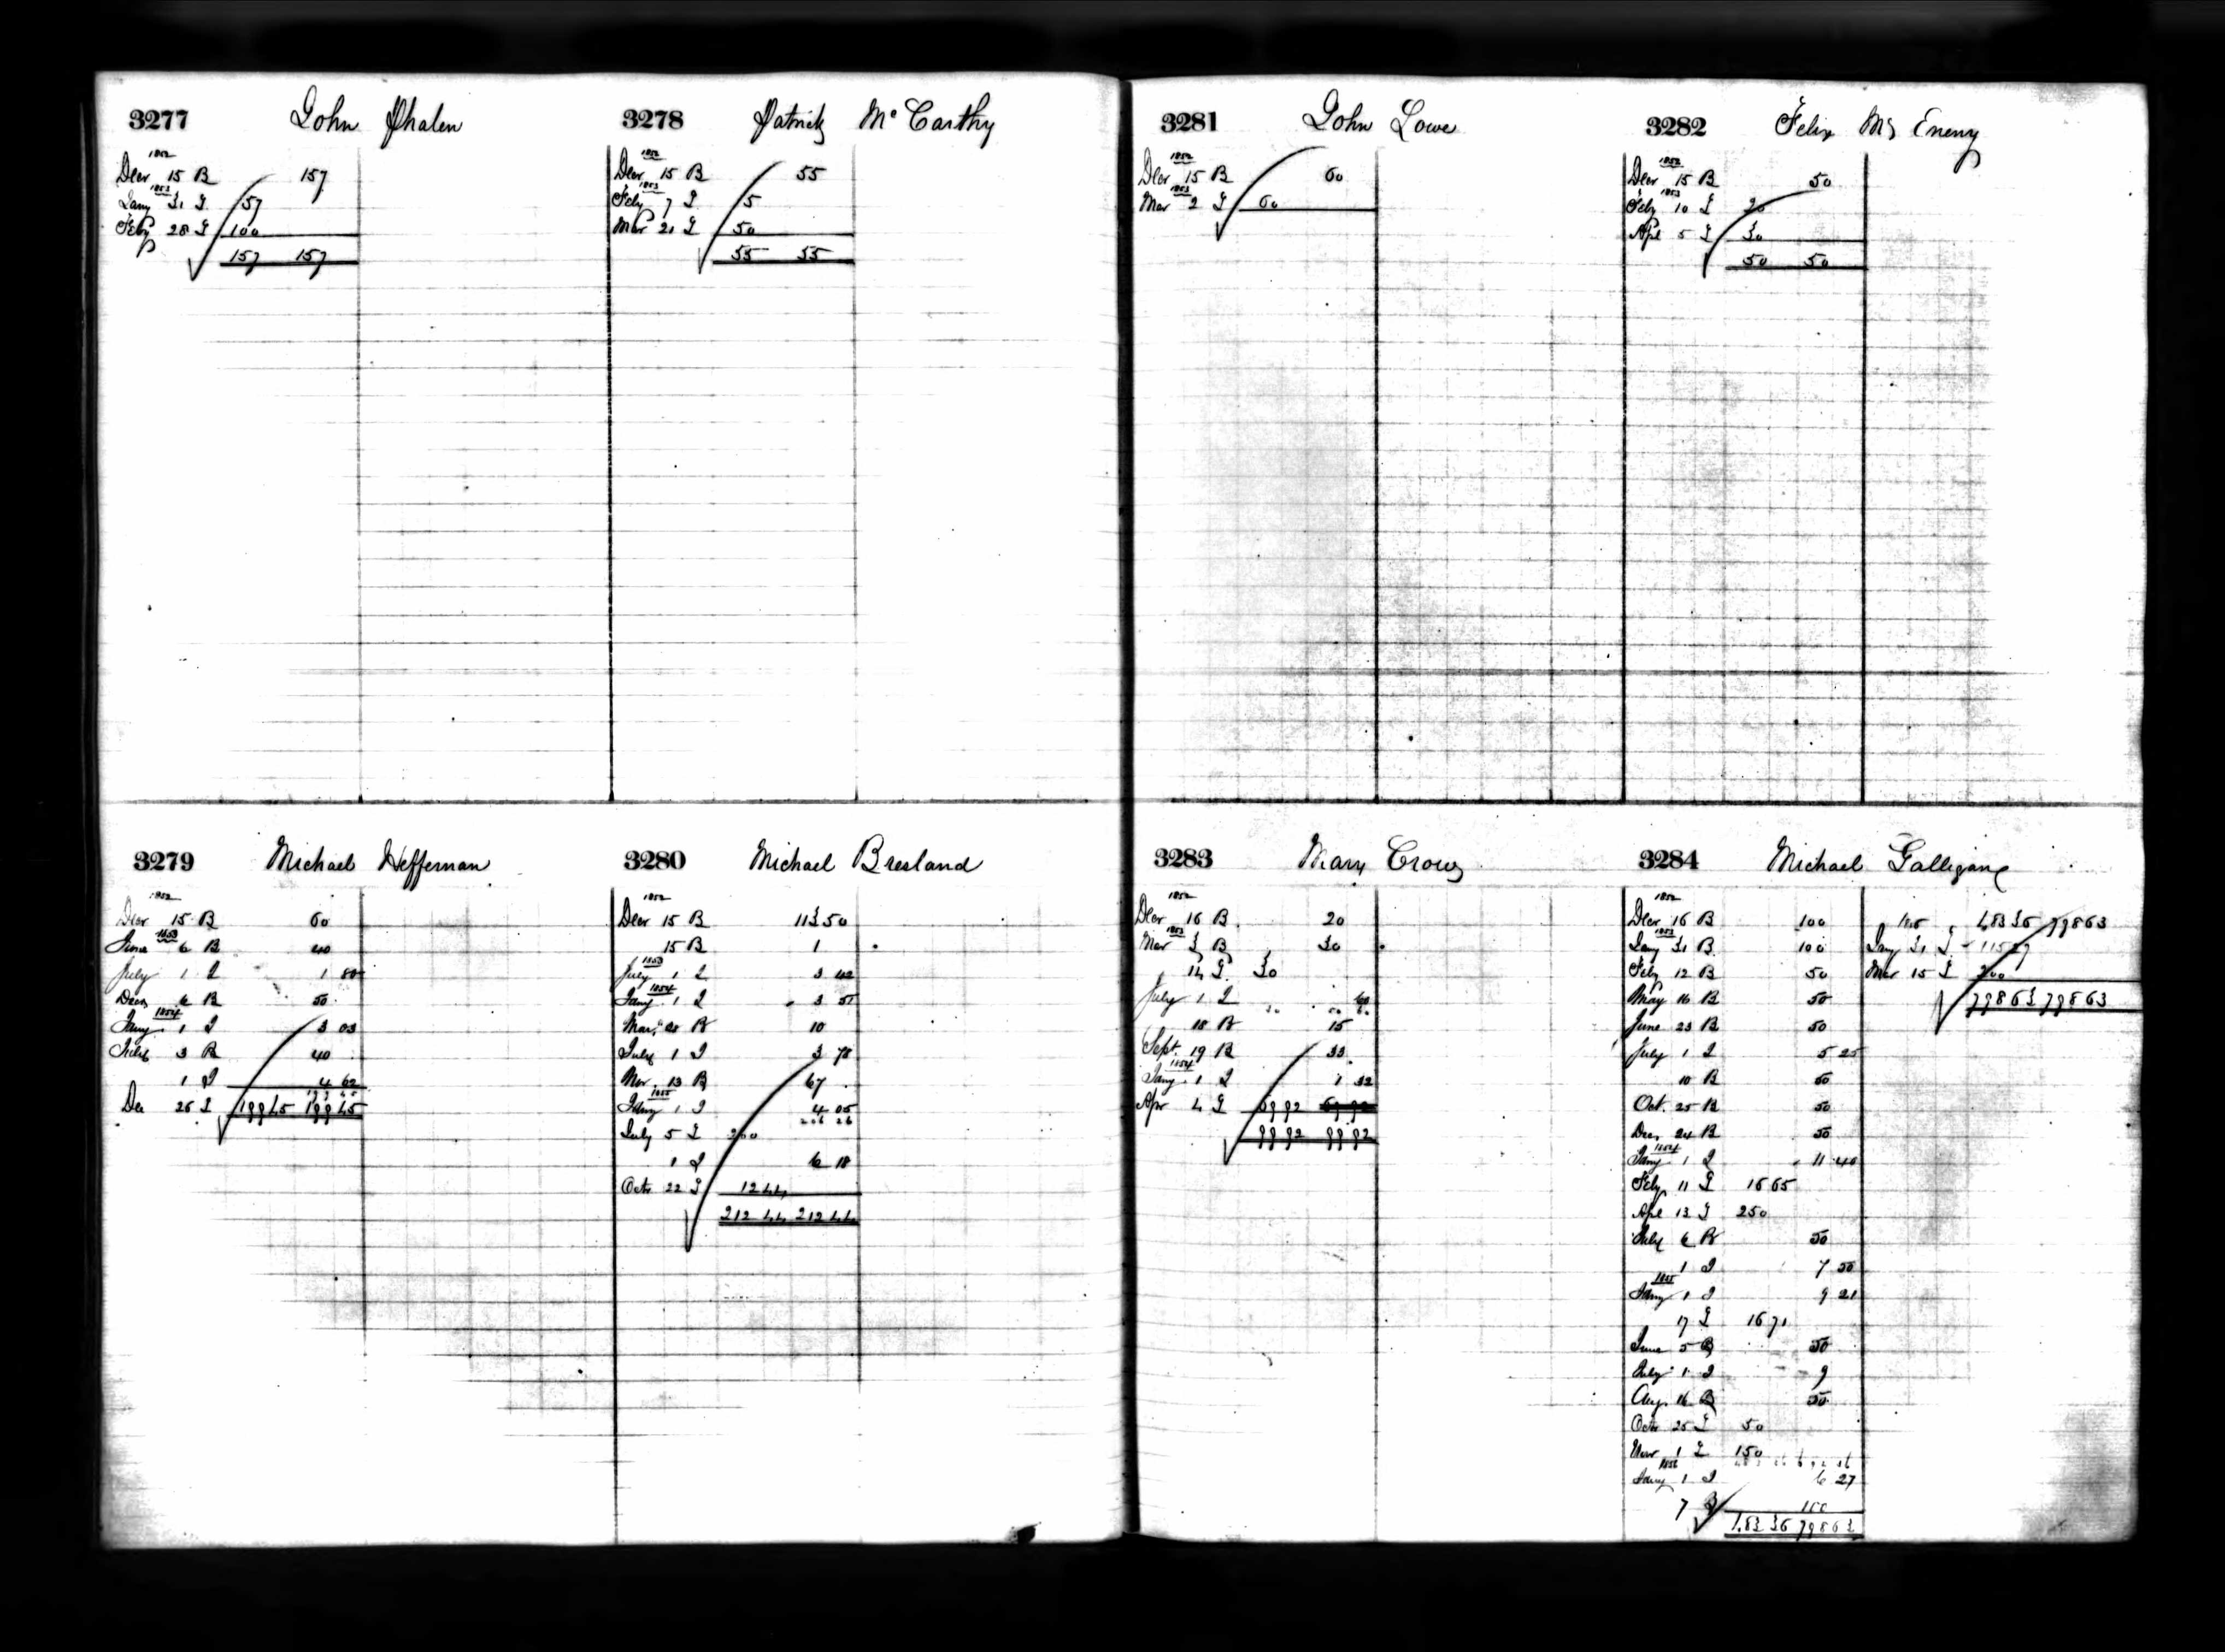 3277 John Phalen
1852
Decr 15 B 157
1853
Jany 31 L 57
Feby 28 L 100
157 157
3278 Patrick McCarthy
1852
Decr 15 B 55
1853
Feby 7 L 5
Mar 21 L 50
55 55
3279 Michael Heffernan
1852
Decr 15 B 60
1853
June 6 B 40
July 1 I 1 80
Decr 6 B 50
1854
Jany 1 I 3 03
July 3 B 40
1 I 4 62
Dec 26 L 199 45 199 45
3280 Michael Bresland
1852
Decr 15 B 113 50
15 B 1
1853
July 1 I 3 42
1854
Jany 1 I 3 51
Mar 28 B 10
July 1 I 3 78
Nov 13 B 67
1855
Jany 1 I 4 05
206 26
July 5 L 200
1 I 6 18
Octr 22 L 12 44
212 44 212 44
3281 John Lowe
1852
Decr 15 B 60
1853
Mar 2 L 60
3282 Felix Mc Eneny
1852
Decr 15 B 50
1853
Feby 10 L 20
Apl 5 L 30
50 50
3283 Mary Crowe
1852
Decr 16 B 20
1853
Mar 3 B 30
14 L 30
July 1 I 60
18 B 15
Sept. 19 B 33
1854
Jany 1 I 1 32
Apr 4 L 69 92
99 92 99 92
3284 Michael Galligane
1852
Decr 16 B 100
1853
Jany 31 B 100
Feby 12 B 50
May 16 B 50
June 23 B 50
July 1 I 5 25
10 B 50
Oct. 25 B 50
Dec 24 B 50
1854
Jany 1 I 11 40
Feby 11 L 16 65
Apl 13 L 250
July 6 B 50
1 I 7 50
1855
Jany 1 I 9 21
17 L 16 71
June 5 B 50
July 1 I 9
Aug. 16 B 50
Octr 25 L 50
Nov 1 L 150
1856
Jany 1 I 6 27
7 B 100
483 36 798 63
483 36 798 63
Jany 31 L 115 27
Mar 15 L 200
798 63 798 63